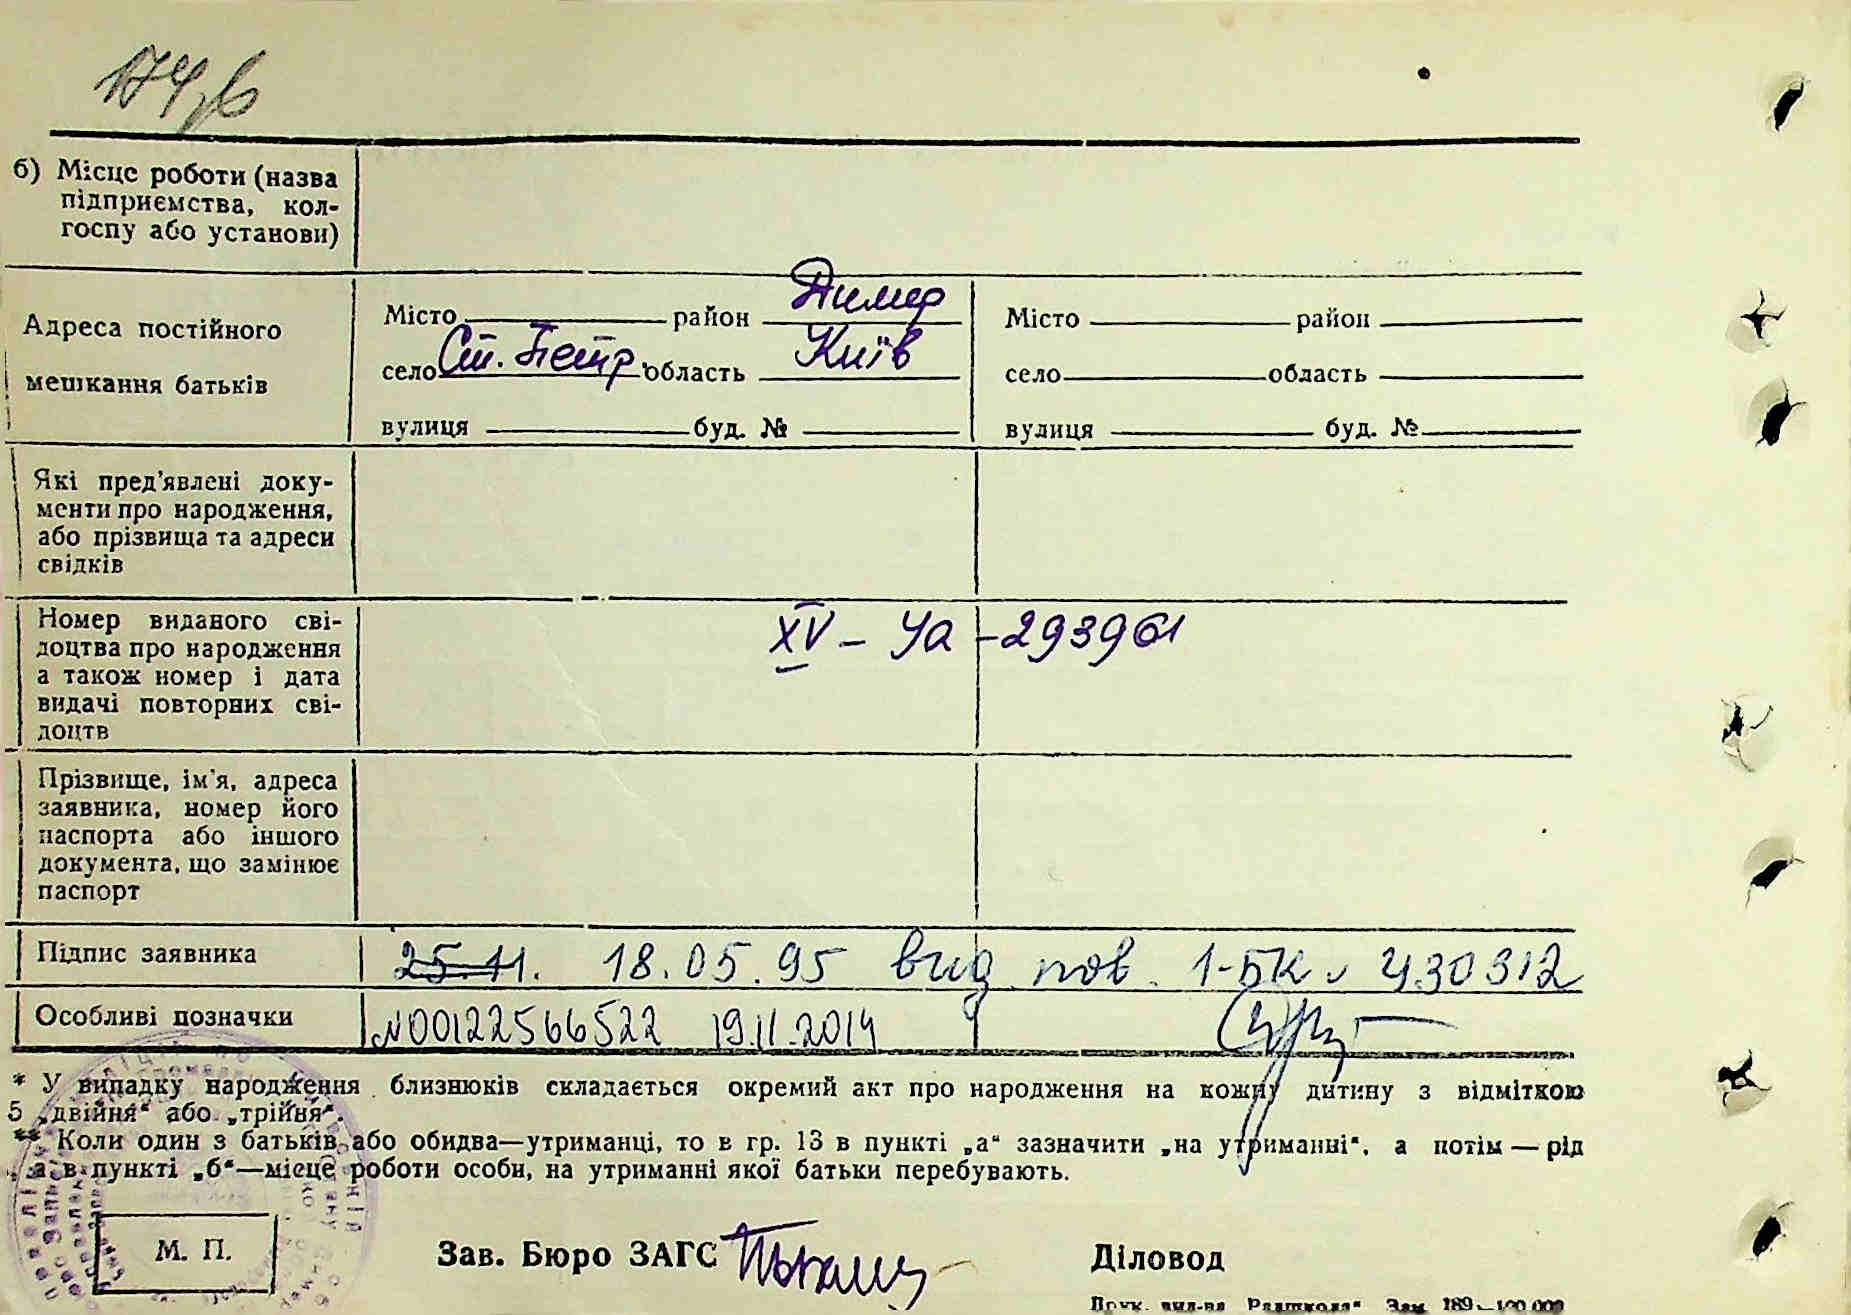 174,6
б) Місце роботи (назва
підприємства, кол-
госпу або установи)
Адреса постійного
мешкання батьків
Місто район Димер
село Ст. Петр. область Київ
вулиця буд. №
Місто район
село область
вулиця буд. №
Які пред'явлені доку-
менти про народження,
або прізвища та адреси
свідків
Номер виданого сві-
доцтва про народження
а також номер і дата
видачі повторних сві-
доцтв
XV – Уа – 293961
Прізвище, ім'я, адреса
заявника, номер його
паспорта або іншого
документа, що замінює
паспорт
Підпис заявника
25.11. 18.05.95 вид. пов. 1-БК 430312
Особливі позначки
N00122566522 19.11.2014
* У випадку народження близнюків складається окремий акт про народження на кожну дитину з відміткою
5 „двійня“ або „трійня“.
** Коли один з батьків або обидва—утриманці, то в гр. 13 в пункті „а“ зазначити „на утриманні“, а потім — рід
а в пункті „б“—місце роботи особи, на утриманні якої батьки перебувають.
М. П.
Зав. Бюро ЗАГС
Діловод
Друк. вид-ва „Радшкола“ Зам. 189—100.000